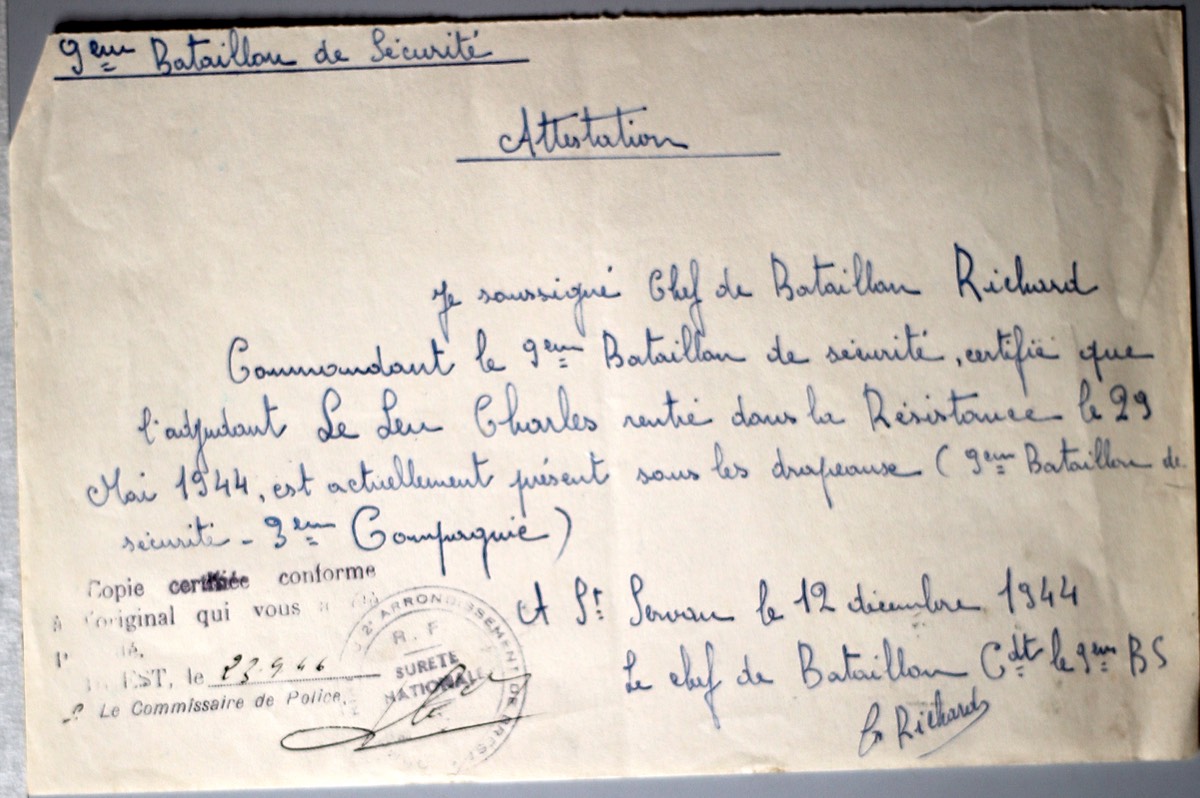 9ème Bataillon de Sécurité
Attestation
Je soussigné Chef de Bataillon Richard
Commandant le 9ème Bataillon de sécurité, certifie que
l'adjudant Le Leu Charles rentré dans la Résistance le 29
Mai 1944, est actuellement présent sous les drapeause (9ème Bataillon de
sécurité - 3ème Compagnie)
A St Servan le 12 décembre 1944
Le chef de Bataillon Cdt le 9ème BS
Richard
Copie certifiée conforme
à l'original qui vous a été
EST, le 23.9.46
Le Commissaire de Police,
2e ARRONDISSEMENT DE BREST
R.F
SURETÉ
NATIONALE